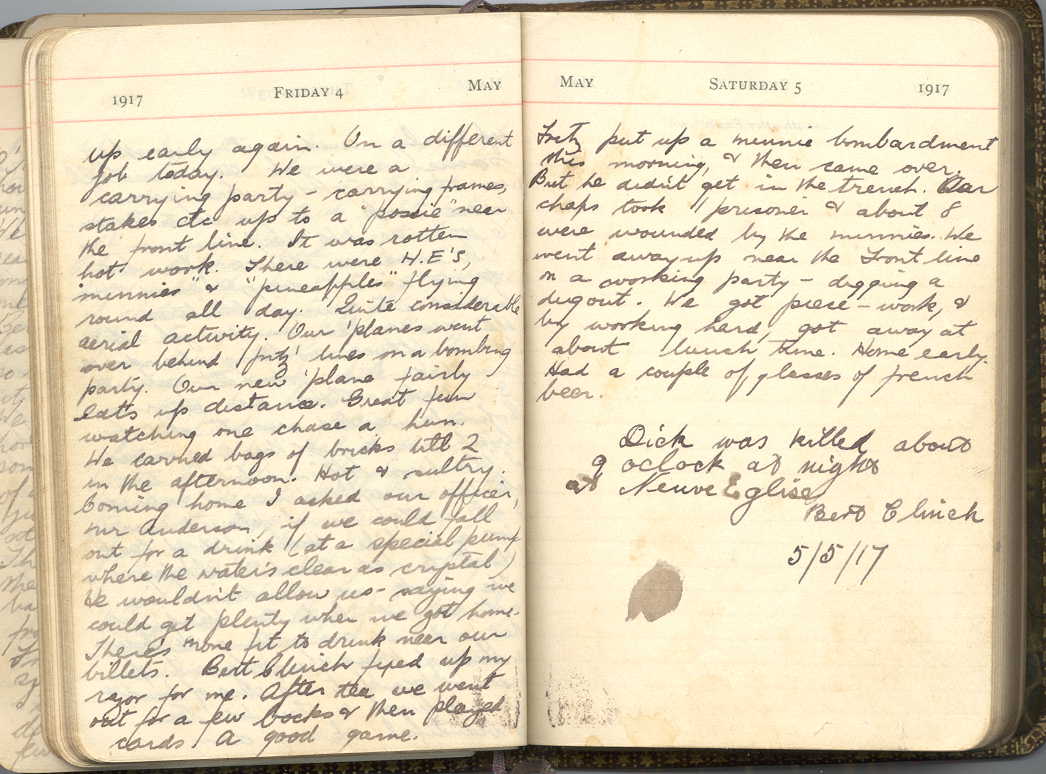 1917 FRIDAY 4 MAY
up early again. On a different
job today. We were a
carrying party - carrying frames,
stakes etc up to a "possie" near
the front line. It was rotten
hot work. There were H.E's,
"minnies" & "pineapples" flying
round all day. Quite considerable
aerial activity. Our 'planes went
over behind fritz' lines on a bombing
party. Our new 'plane fairly
eats up distance. Great fun
watching one chase a hun.
We carried bags of bricks till 2
in the afternoon. Hot & sultry.
Coming home I asked our officer,
mr Anderson, if we could fall
out for a drink (at a special pump
where the water's clear as crystal)
He wouldn't allow us - saying we
could get plenty when we got home.
There's none fit to drink near our
billets. Bert Clinch fixed up my
razor for me. After tea we went
out for a few bocks & then played
cards A good game.
MAY SATURDAY 5 1917
Fritz put up a minnie bombardment
this morning, & then came over,
But he didn't get in the trench. Our
chaps took 1 prisoner & about 8
were wounded by the minnies. We
went away up near the Front line
on a working party - digging a
dugout. We got piece-work, &
by working hard, got away at
about lunch time. Home early.
Had a couple of glasses of french
beer.
Dick was killed about
9 oclock at night
at Neuve Eglise
Bert Clinch
5/5/17